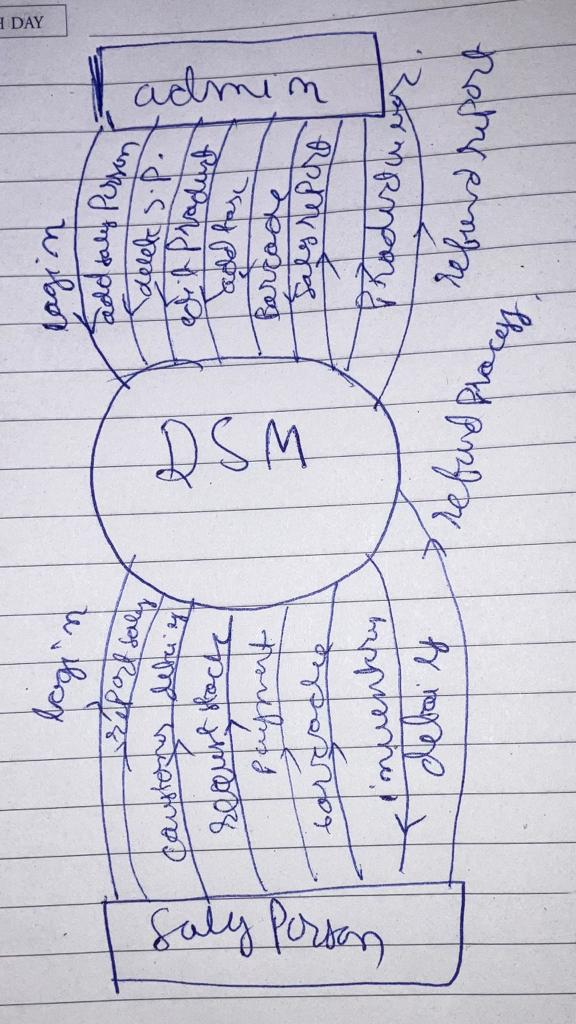 H DAY
admin
login
add saly Person
delete S.P.
edit Product
add tax
Barcode
Saly report
refund report
DSM
refund Process,
login
report saly
request stock
payment
barcode
inventory
details
Saly Person